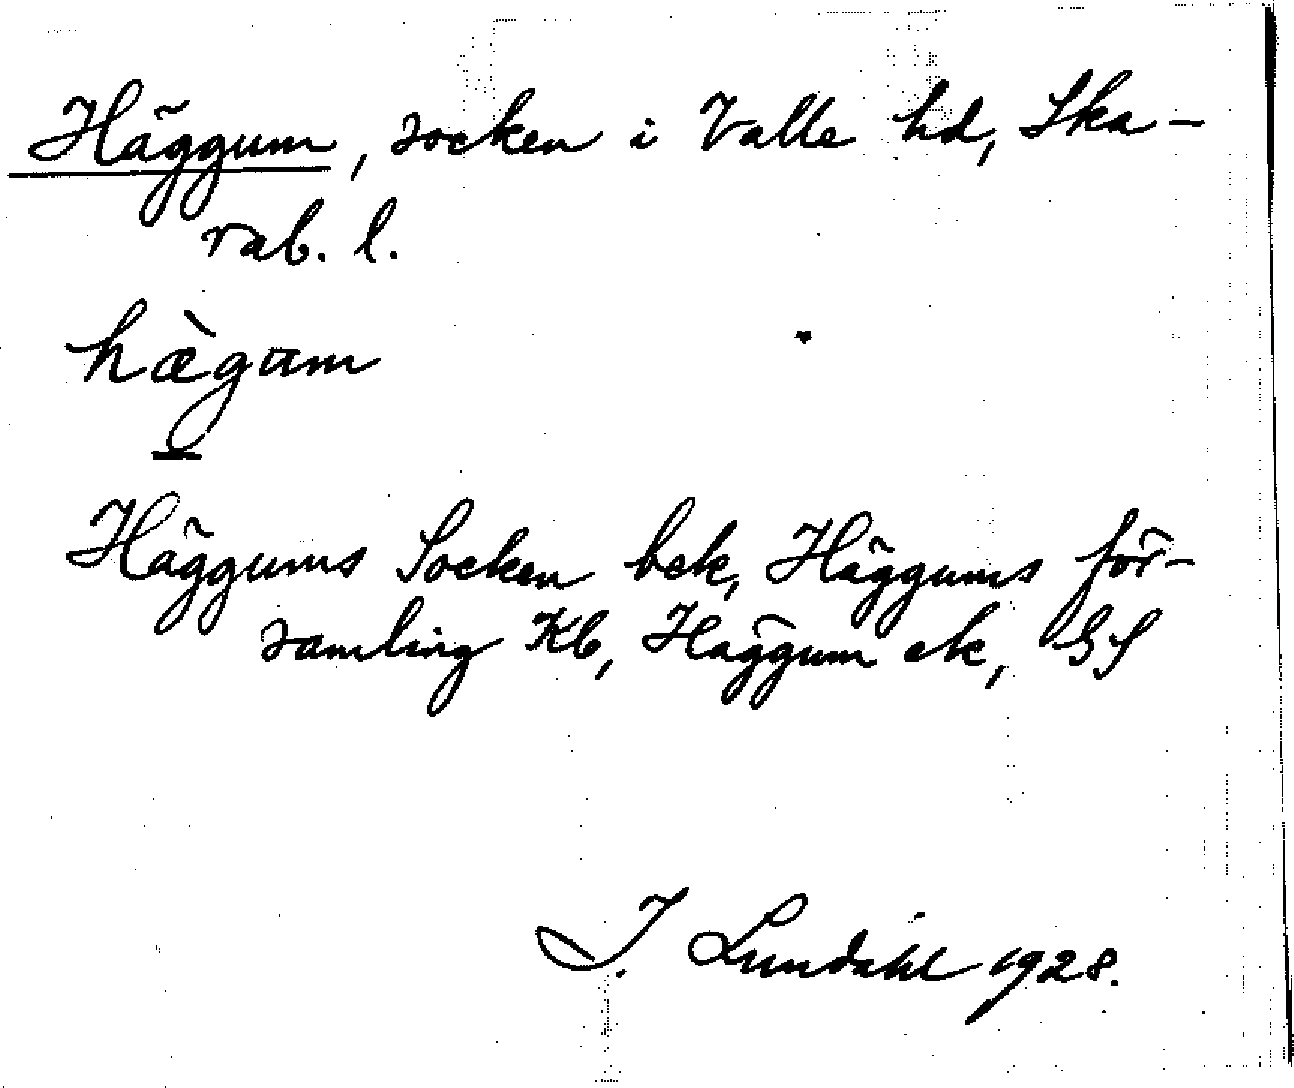 Häggum, socken i Valle hd, Ska-
rab. l.
hæ̀gum
Häggums Socken bek, Häggums för-
samling Kb, Häggum ek, GS
I. Lundahl 1928.